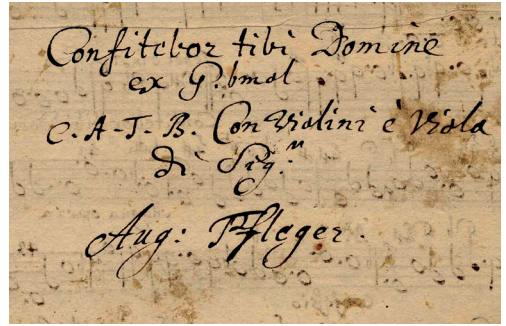 Confitebor tibi Domine
ex G. bmol
C. A. T. B. Con Violini è Viola
di Sig.re
Aug: Pfleger.